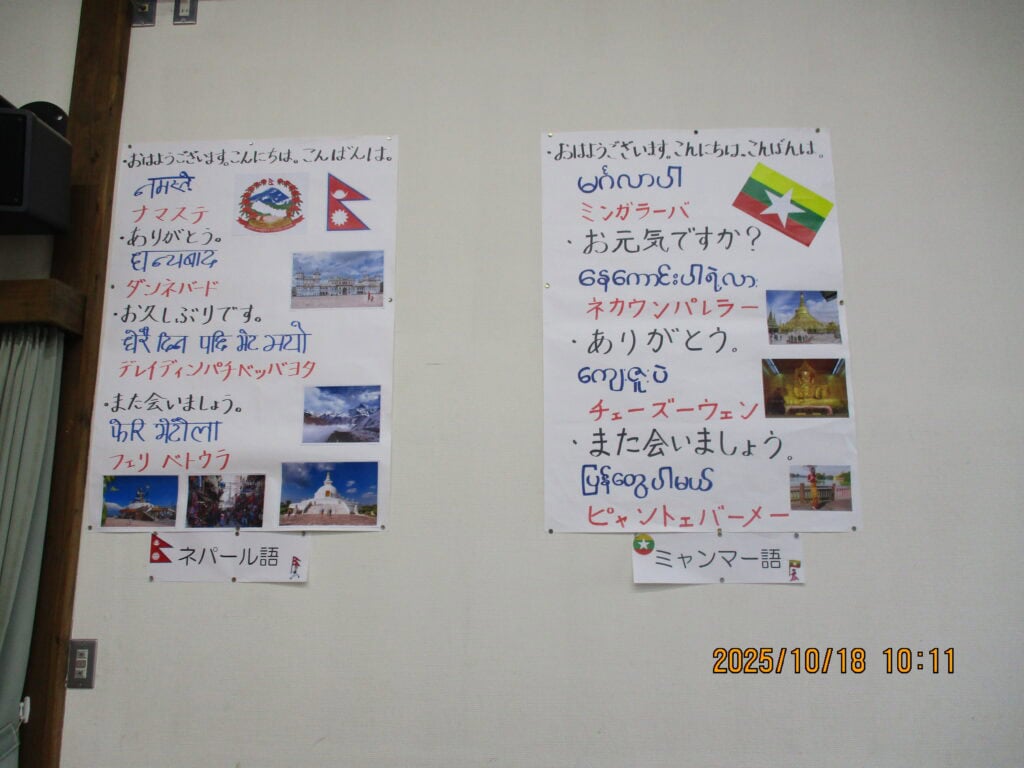 ・おはようございます。こんにちは。こんばんは。
नमस्ते
ナマステ
・ありがとう。
धन्यबाद
ダンネバード
・お久しぶりです。
धेरै दिन पछि भेट भयो
デレイディンパチベッバヨタ
・また会いましょう。
फेरि भेटौला
フェリ ベトウラ
ネパール語
・おはようございます。こんにちは。こんばんは。
မင်္ဂလာပါ
ミンガラーバ
・お元気ですか?
နေကောင်းပါရဲ့လား
ネカウンパレラー
・ありがとう。
ကျေးဇူးပဲ
チェーズーウェン
・また会いましょう。
ပြန်တွေ့ပါမယ်
ピャントェバーメー
ミャンマー語
2025/10/18 10:11